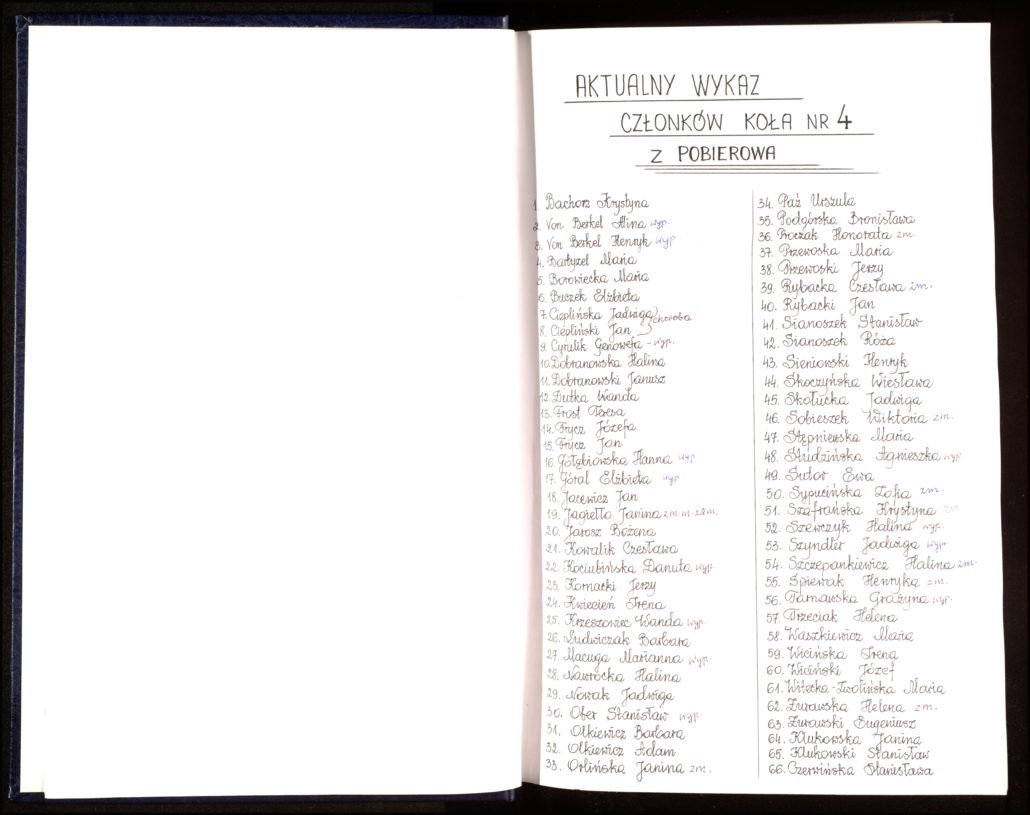 AKTUALNY WYKAZ
CZŁONKÓW KOŁA NR 4
Z POBIEROWA
1. Bachorz Krystyna
2. Von Berkel Alina wyp.
3. Von Berkel Henryk wyp
4. Bartyzel Maria
5. Borowiecka Maria
6. Buczek Elżbieta
7. Cieplińska Jadwiga
8. Ciepliński Jan choroba
9. Cyrulik Genowefa - wyp.
10. Dobranowska Halina
11. Dobranowski Janusz
12. Dutka Wanda
13. Frost Teresa
14. Frycz Józefa
15. Frycz Jan
16. Gołębiowska Hanna wyp.
17. Góral Elżbieta wyp
18. Jacewicz Jan
19. Jagiełło Janina
20. Jarosz Bożena
21. Kowalik Czesława
22. Kociubińska Danuta wyp.
23. Kornacki Jerzy
24. Kwiecień Irena
25. Krzeszowiec Wanda wyp.
26. Ludwiczak Barbara
27. Macuga Marianna wyp.
28. Nawrocka Halina
29. Nowak Jadwiga
30. Ober Stanisław wyp.
31. Olkiewicz Barbara
32. Olkiewicz Adam
33. Orlińska Janina zm.
34. Paź Urszula
35. Podgórska Bronisława
36. Proczak Honorata zm.
37. Przewoska Maria
38. Przewoski Jerzy
39. Rybacka Czesława zm.
40. Rybacki Jan
41. Sianoszek Stanisław
42. Sianoszek Róża
43. Sieniowski Henryk
44. Skoczyńska Wiesława
45. Skołucka Jadwiga
46. Sobieszek Wiktoria zm.
47. Stępniewska Maria
48. Studzińska Agnieszka wyp
49. Sutor Ewa
50. Sypucińska Zofia zm.
51. Szafrańska Krystyna
52. Szewczyk Halina wyp.
53. Szyndler Jadwiga wyp.
54. Szczepankiewicz Halina zm.
55. Śpiewak Henryka zm.
56. Tarnawska Grażyna wyp.
57. Trzeciak Helena
58. Waszkiewicz Maria
59. Wicińska Irena
60. Wiciński Józef
61. Witecka - Zwolińska Maria
62. Żurawska Helena zm.
63. Żurawski Eugeniusz
64. Klukowska Janina
65. Klukowski Stanisław
66. Czerwińska Stanisława